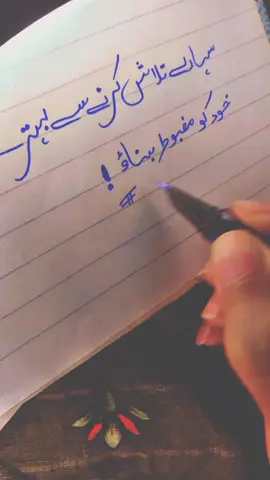 سہارے تلاش کرنے سے بہتر
خود کو مضبوط بناؤ !
#